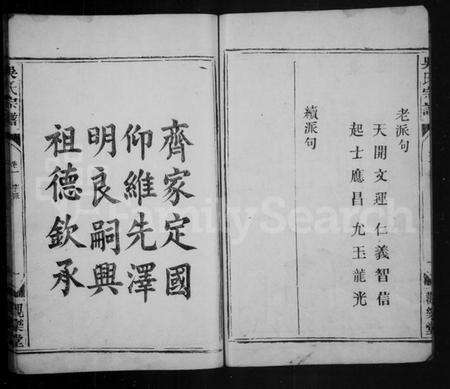 吳氏宗譜
老派句
天開文運仁義智信
起士應昌尤玉龍光
續派句
齊家定國
仰維先澤
明良嗣興
祖德欽承
吳氏宗譜
卷一
觀樂堂
FamilySearch